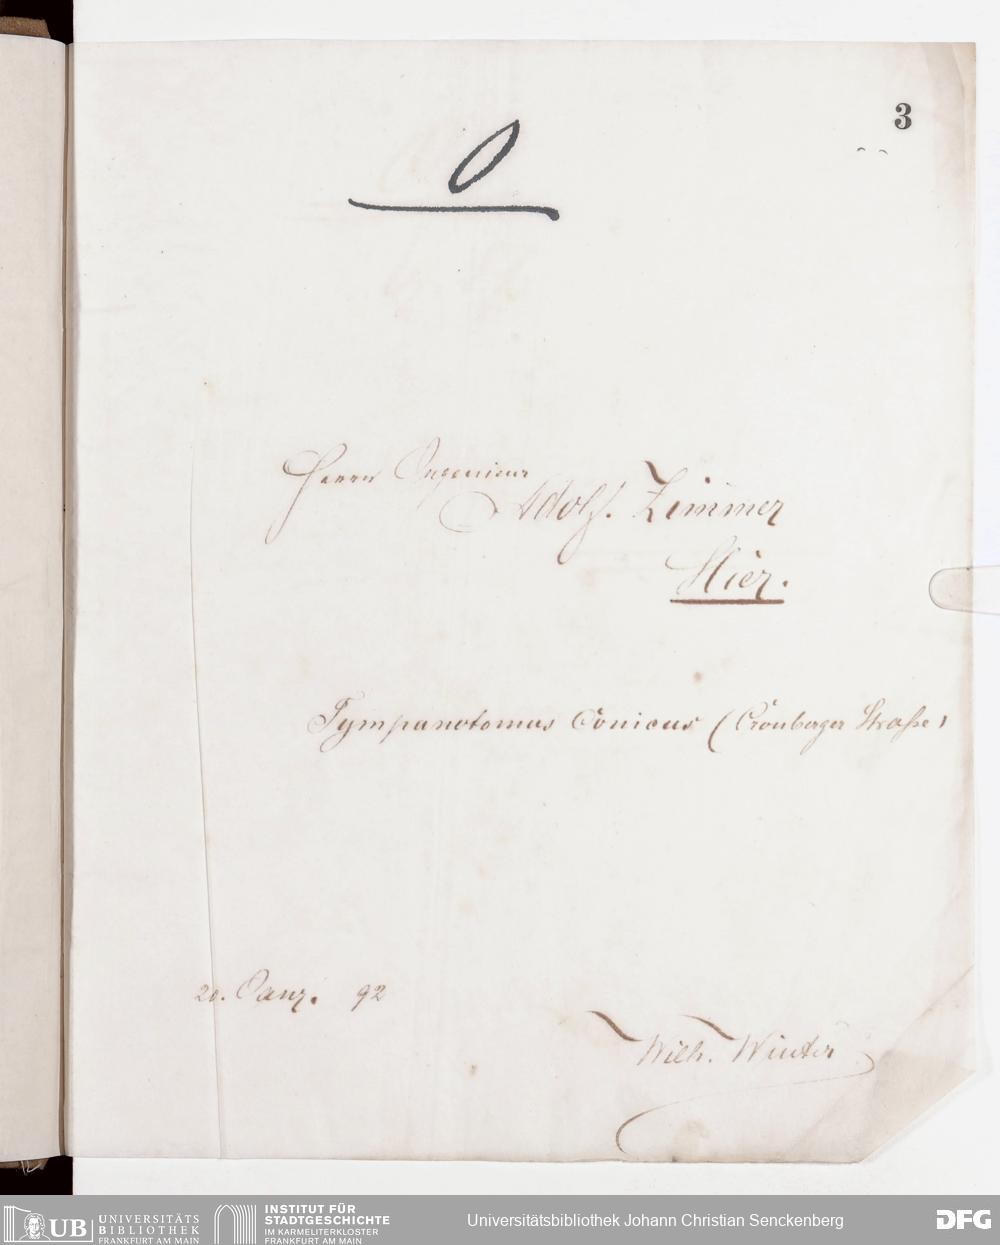 3
0
Herrn Ingenieur
Adolf. Zimmer
Hier.
Tympanotomus Conicus (Cronberger Straße)
20. Janr. 92
Wilh. Winter
UB UNIVERSITÄTS
BIBLIOTHEK
FRANKFURT AM MAIN
INSTITUT FÜR
STADTGESCHICHTE
IM KARMELITERKLOSTER
FRANKFURT AM MAIN
Universitätsbibliothek Johann Christian Senckenberg
DFG